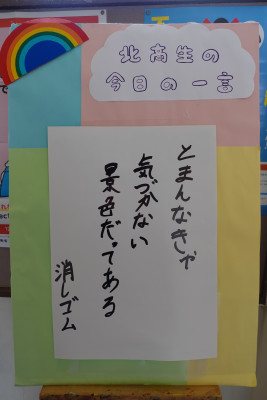 北高生の
今日の一言
とまんなきゃ
気づかない
景色だってある
消しゴム